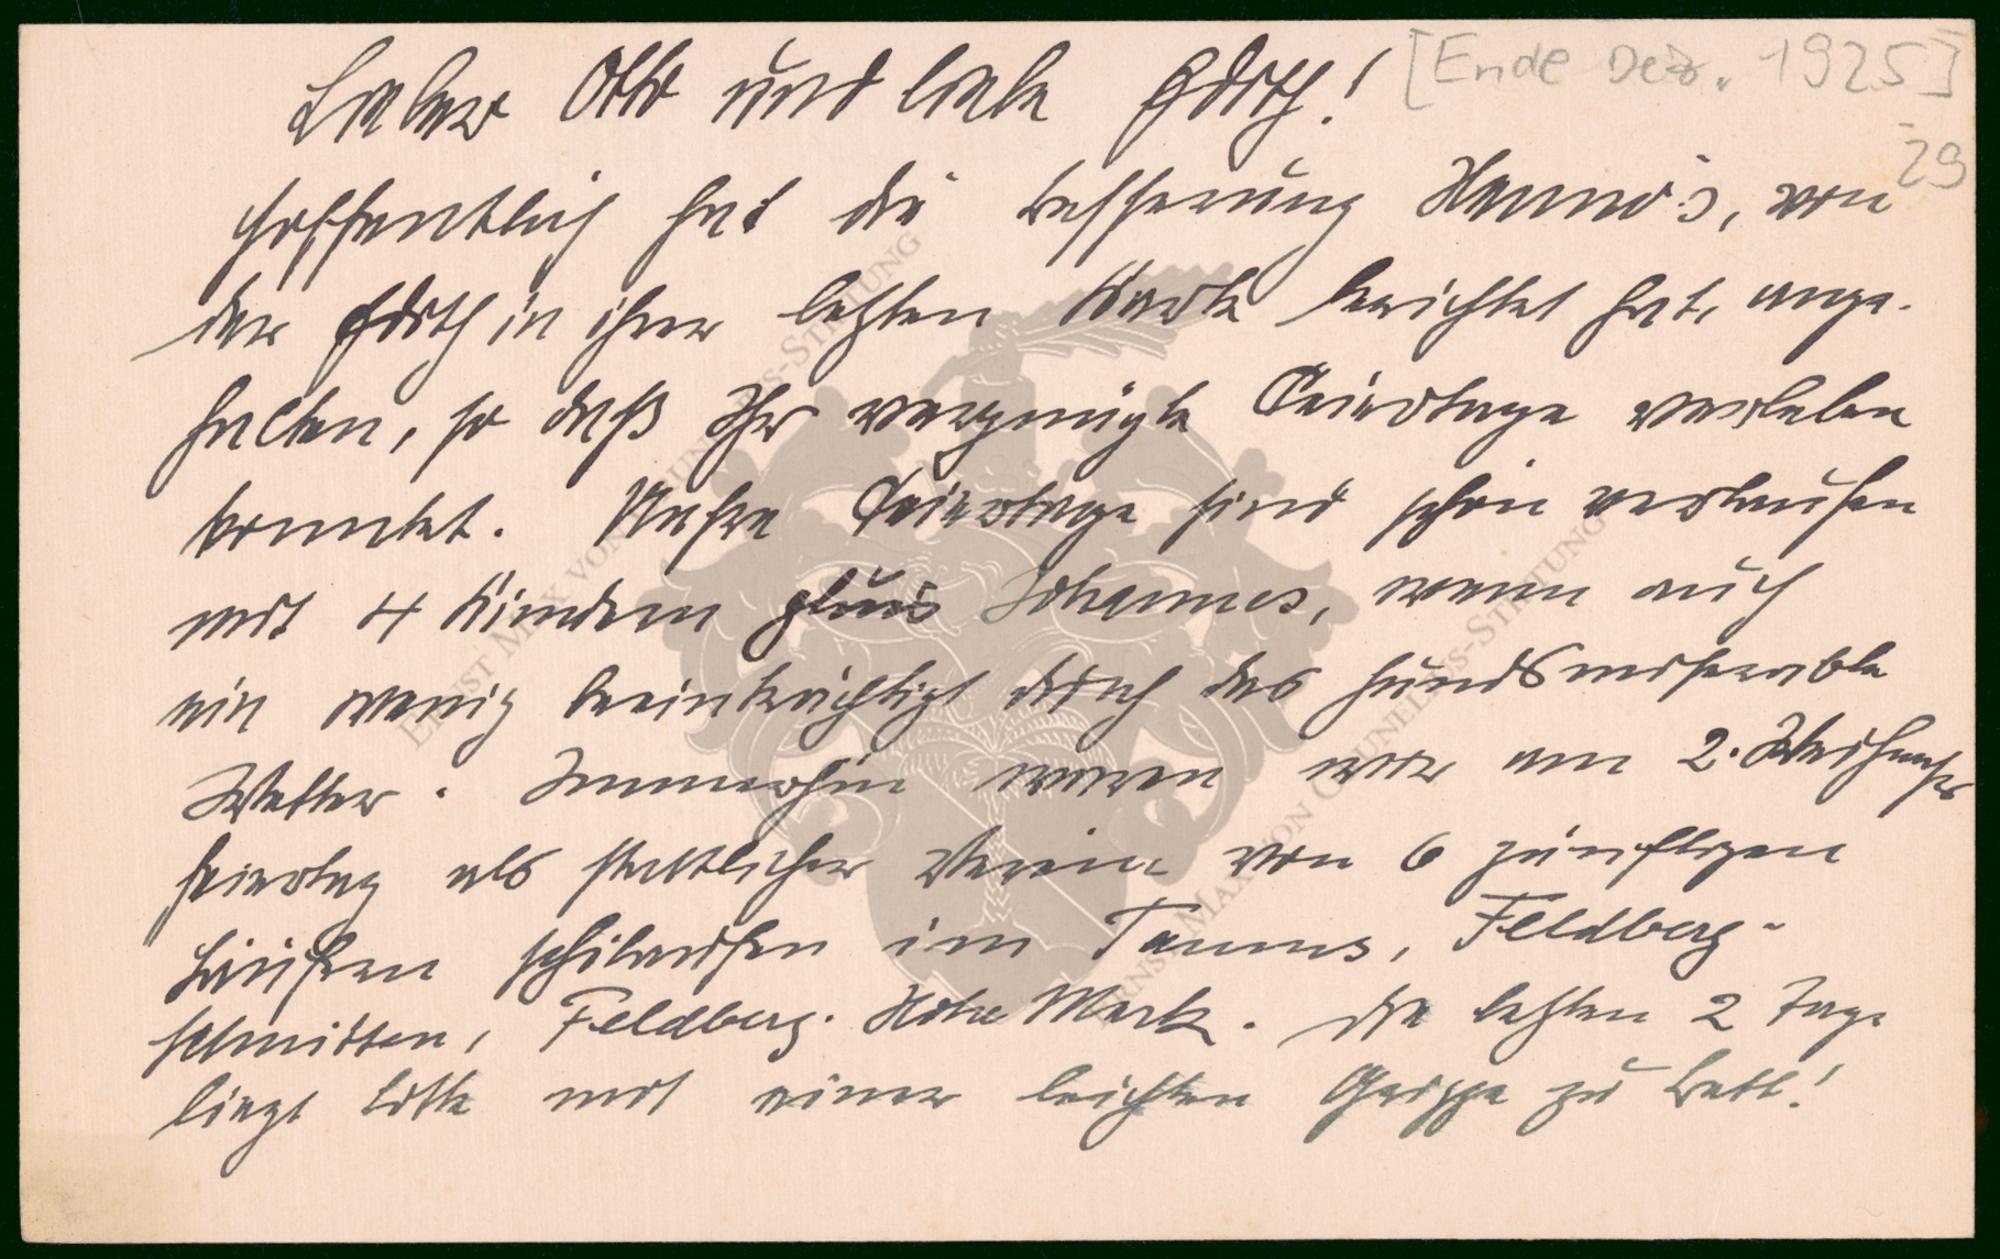 Lieber Otto und liebe Edith! [Ende Dez. 1925]
29
Hoffentlich hat die Besserung Hanno's, von
der Edith in ihrer letzten Karte berichtet hat, ange-
halten, so daß Ihr vergnügte Feiertage verleben
konntet. Unsre Feiertage sind schön verlaufen
mit 4 Kindern plus Johannes, wenn auch
ein wenig beeinträchtigt durch das hundsmiserable
Wetter. Immerhin waren wir am 2. Weihnachts
feiertag als stattlicher Verein von 6 zünftigen
Läufern schilaufen im Taunus, Feldberg-
schmitten, Feldberg-Hohe Mark. Die letzten 2 Tage
liegt Lotte mit einer leichten Grippe zu Bett!
ERNST MAX VON GRUNELIUS-STIFTUNG
ERNST MAX VON GRUNELIUS-STIFTUNG